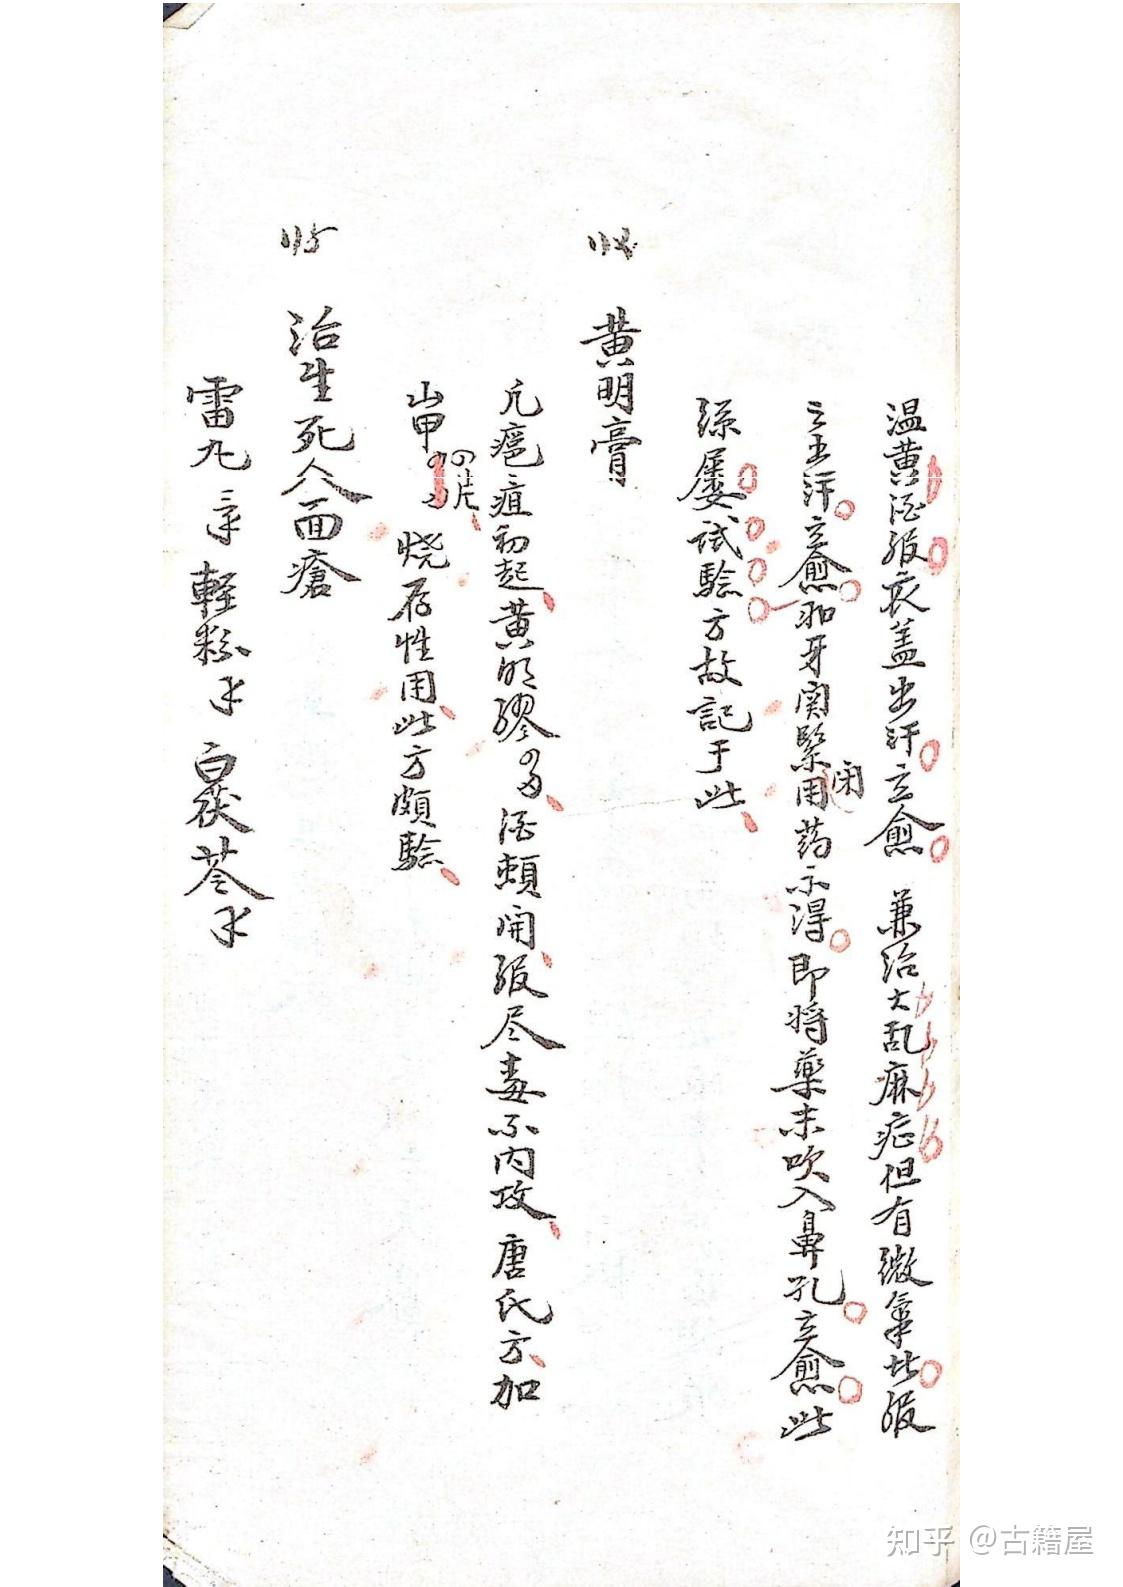 温黄酒服衣盖出汗立愈兼治大乱麻症但有微氣此服
之出汗立愈如牙関緊闭用药不得即将藥末吹入鼻孔立愈此
係屡試驗方故記于此
黄明膏
凡瘡疽初起黄明膠酒頼開服尽毒不内攻唐氏方加
山甲四片烧存性用此方頗驗
治生死人面瘡
雷丸輕粉白茯苓
知乎 @古籍屋